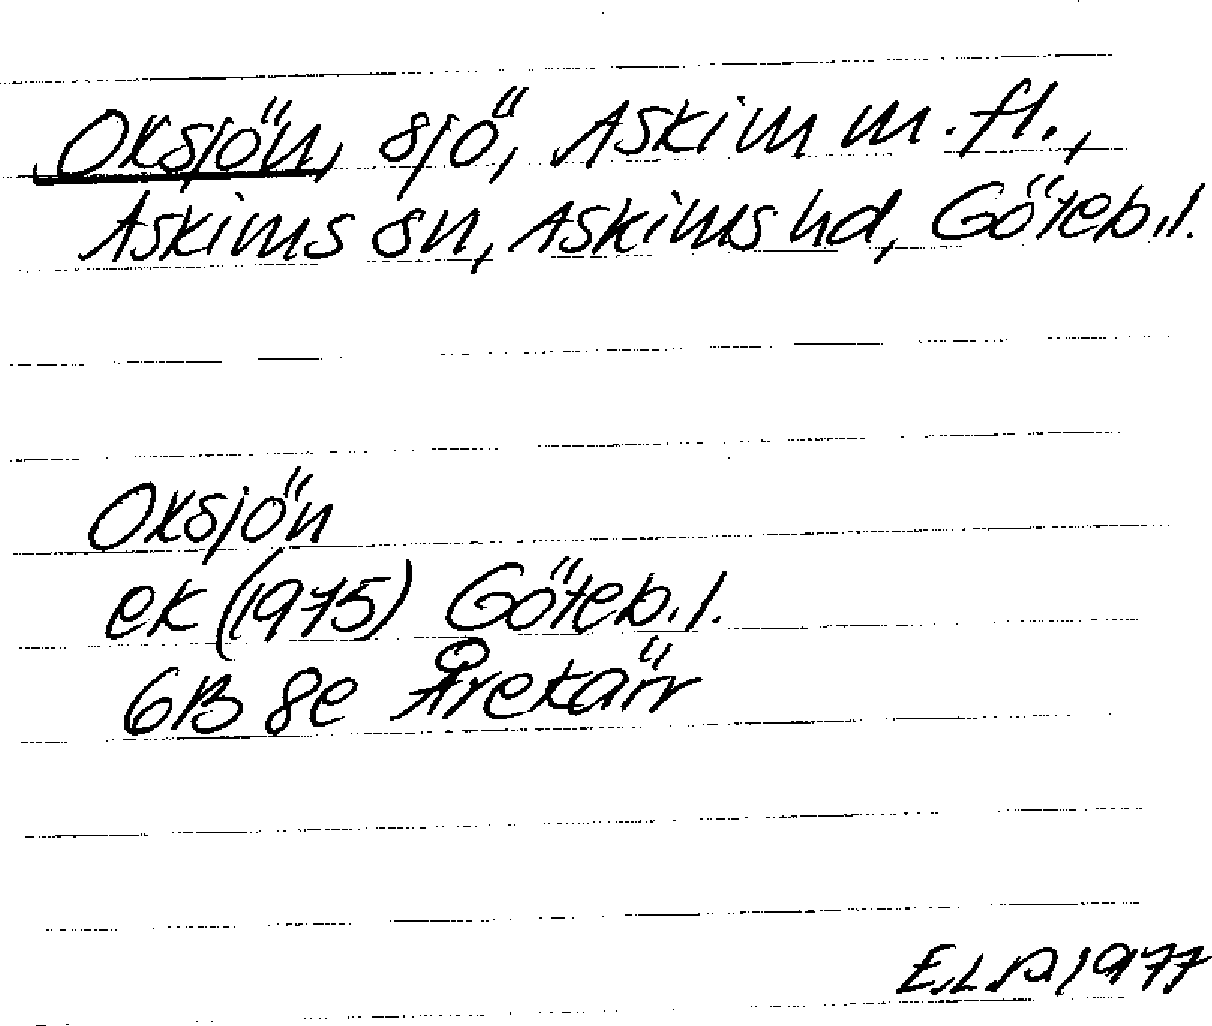 Oxsjön, sjö, Askim m.fl.,
Askims sn, Askims hd, Göteb.l.
Oxsjön
ek (1975) Göteb.l.
6B 8e Årekärr
1977